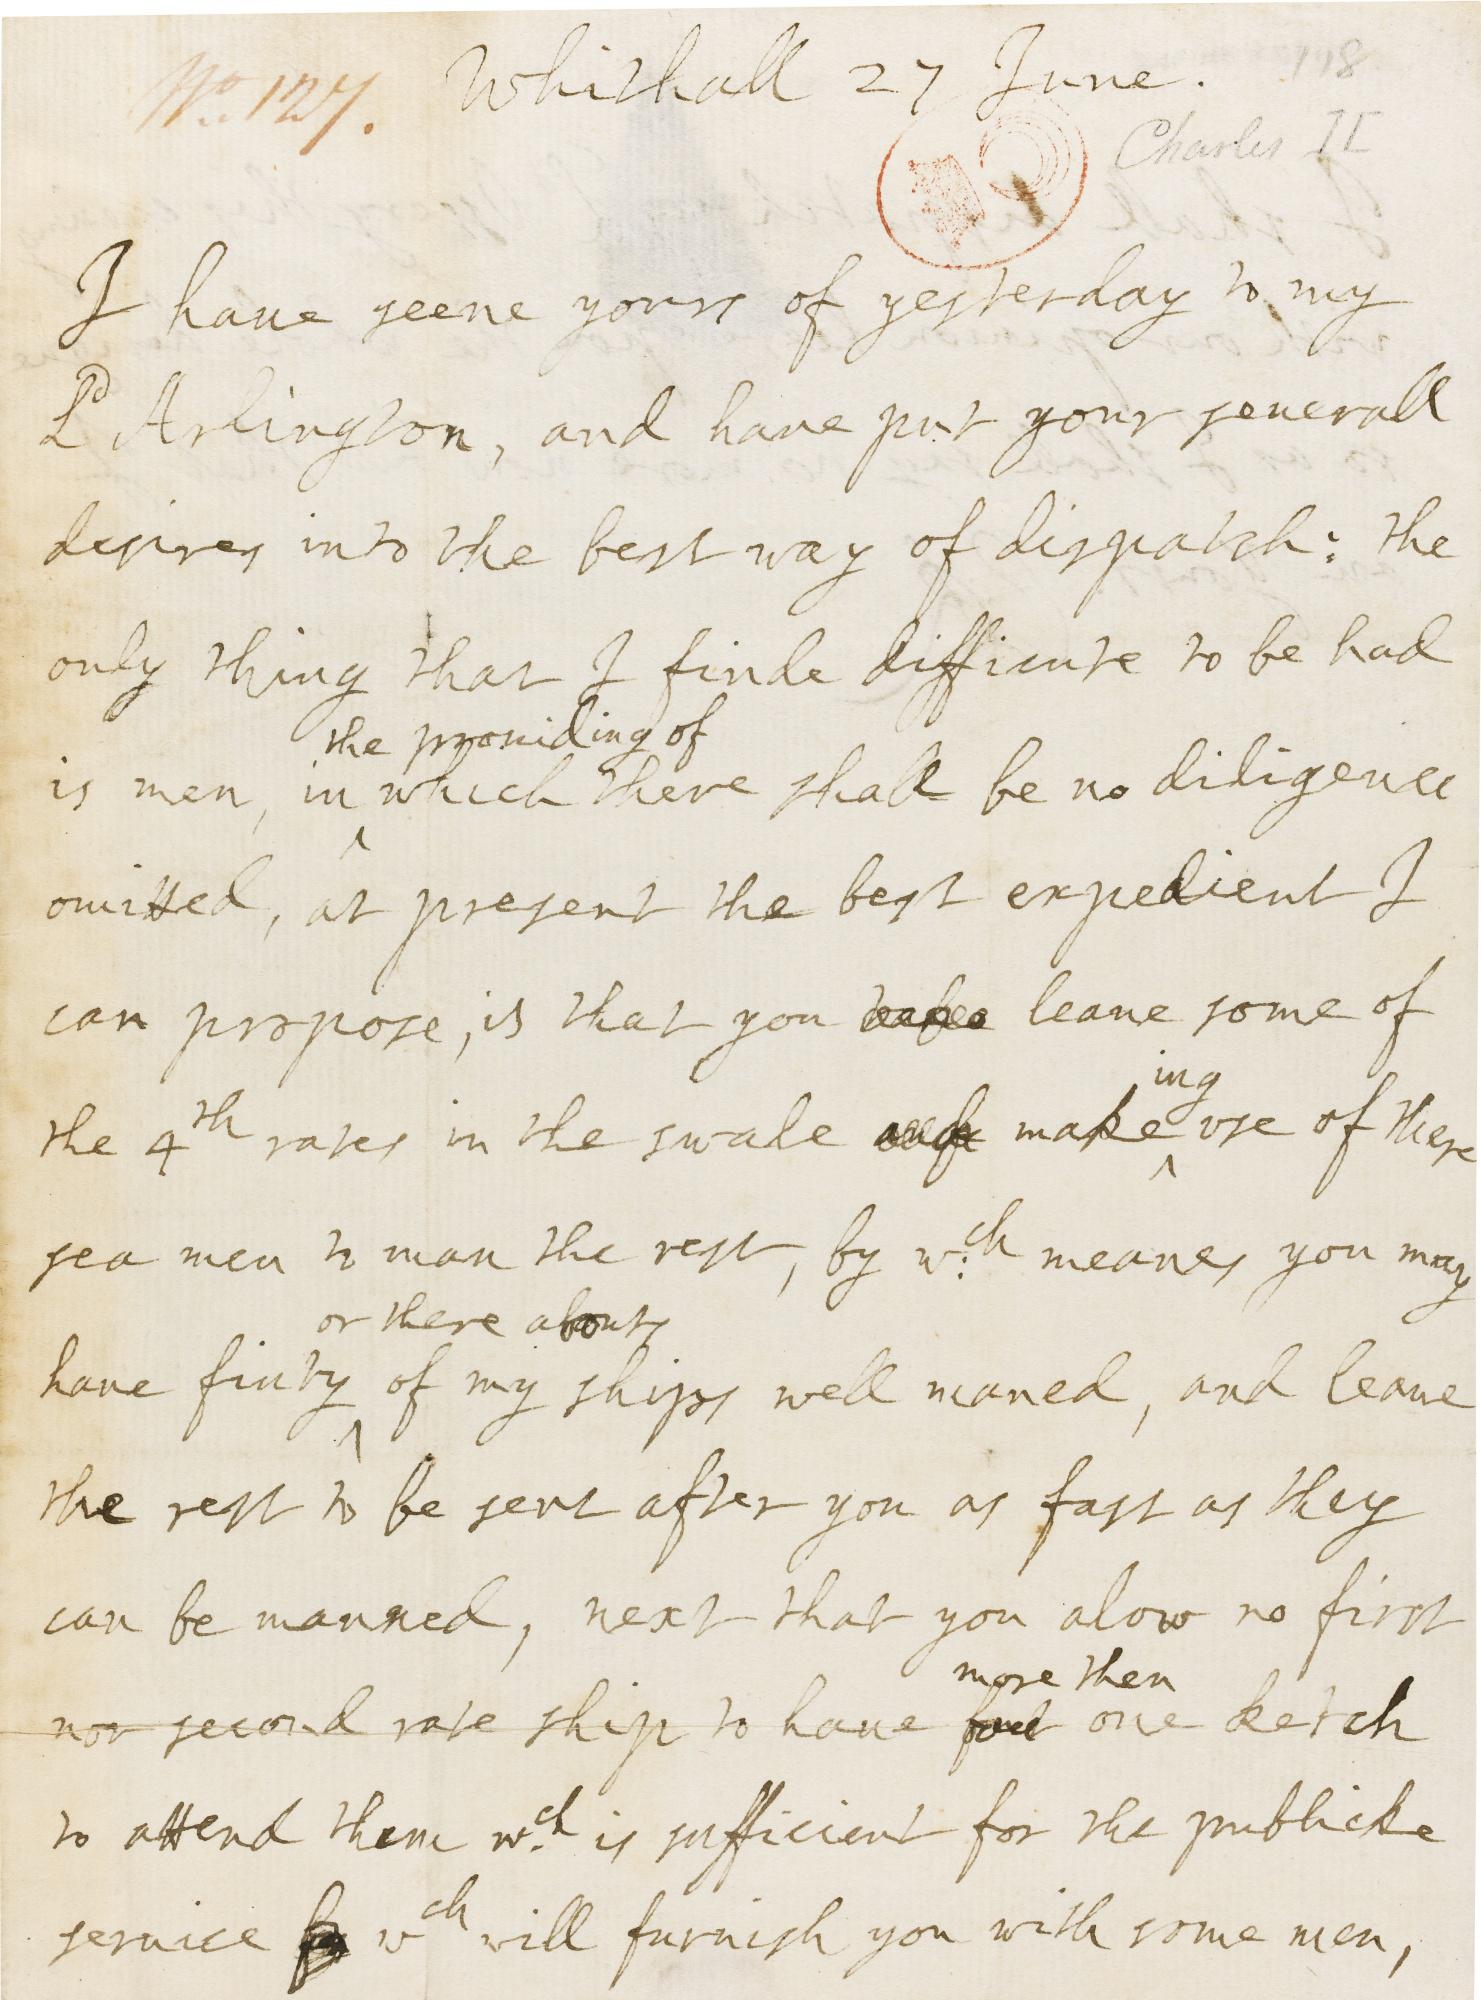 Whithall 27 June.
No. 127.
118
Charles II
I haue seene yours of yesterday to my
Ld Arlington, and haue put your seuerall
desires into the best way of dispatch: the
only thing that I finde difficute to be had
the prouiding of
is men, in ^ which there shall be no diligence
omitted, at present the best expedient I
can propose, is that you leaue some of
ing
the 4th rates in the swale make ^ use of these
sea men to man the rest, by w:ch meanes you may
or there abouts
haue fiuty ^ of my ships well maned, and leaue
the rest to be sent after you as fast as they
can be manned, next that you alow no first
more then
nor second rate ship to haue but one ketch
to attend them w:ch is sufficient for the publicke
seruice wch will furnish you with some men,